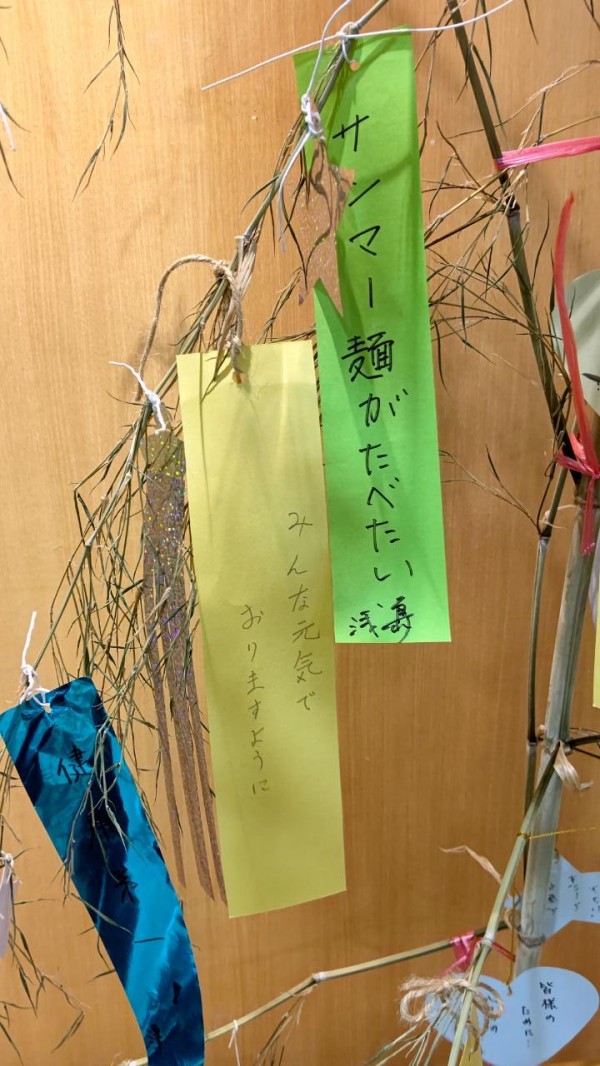 サンマー麺がたべたい
みんな元気で
おりますように
健康
皆様の
ために…